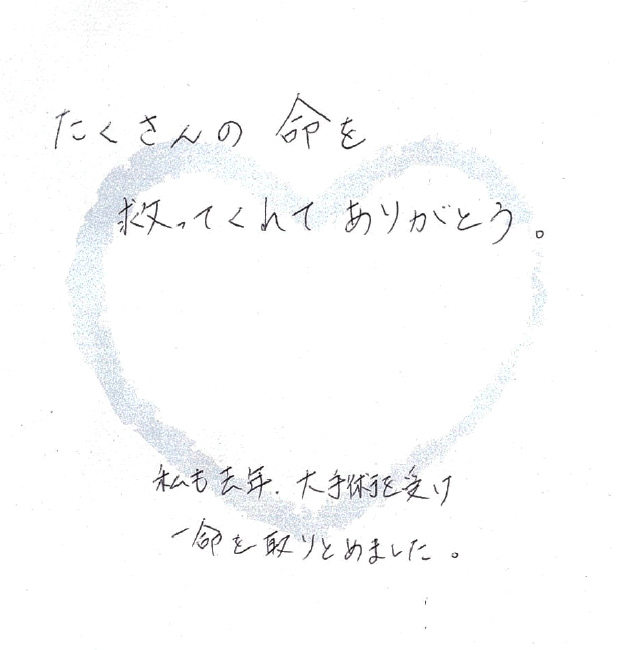 たくさんの 命を
救ってくれて ありがとう。
私も去年、大手術を受け
一命を取りとめました。